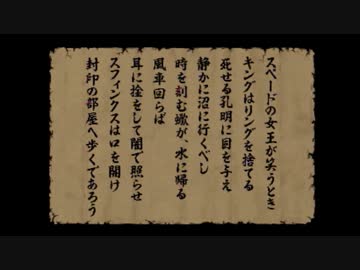 スペードの女王が笑うとき
キングはリングを捨てる
死せる孔明に目を与え
静かに沼に行くべし
時を刻む蠍が、水に帰る
風車回らば
耳に栓をして闇で照らせ
スフィンクスは口を開け
封印の部屋へ歩くであろう